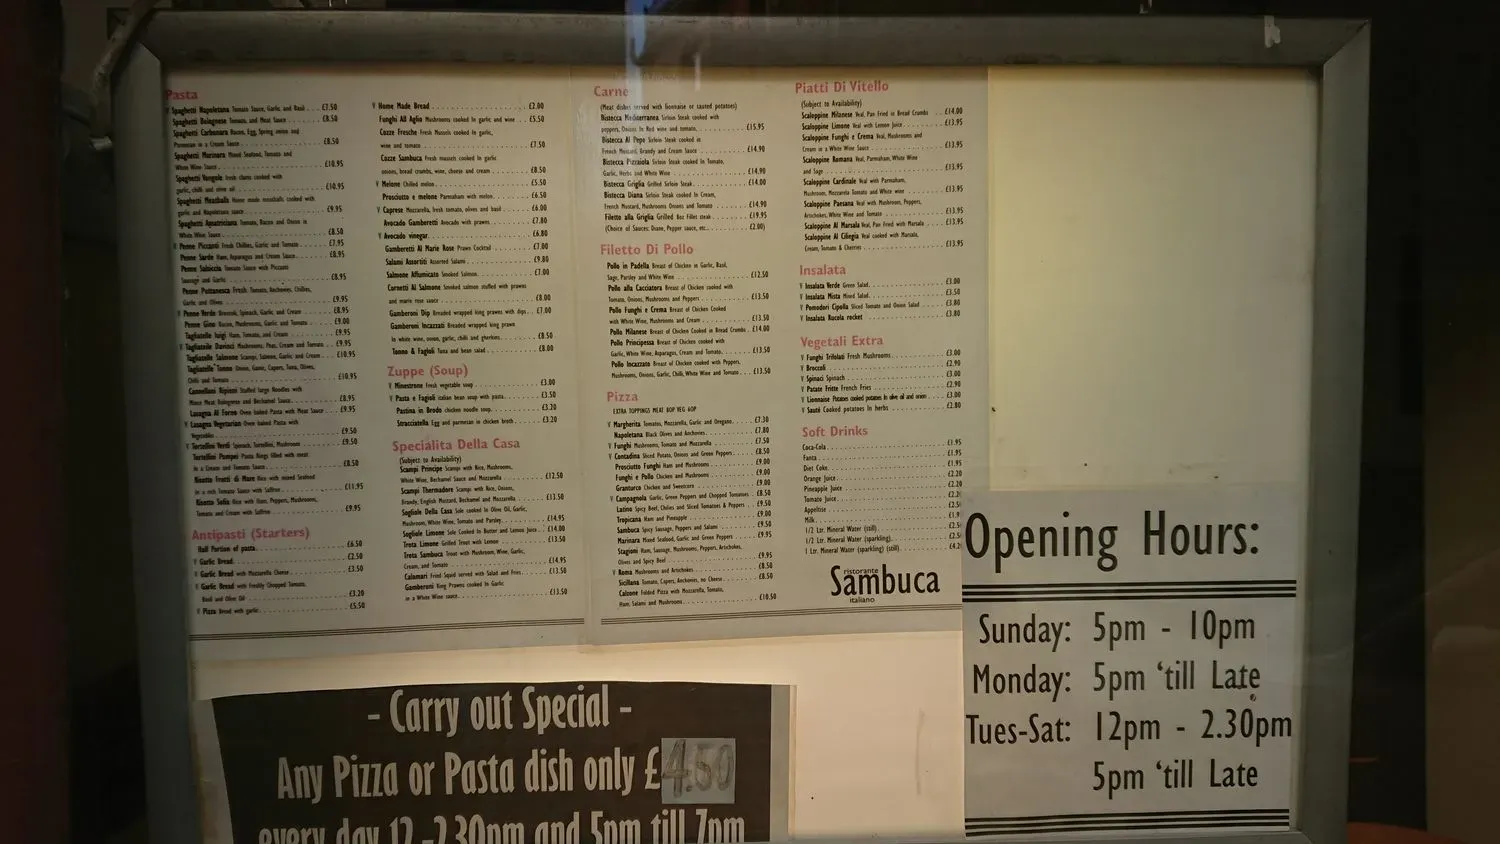 Pasta
V Spaghetti Napoletana Tomato Sauce, Garlic and Basil . . . £7.50
Spaghetti Bolognese Tomato, and Meat Sauce . . . £8.50
Spaghetti Carbonara Bacon, Egg, Spring onion and
Parmesan in a Cream Sauce . . . £8.50
Spaghetti Marinara Mixed Seafood, Tomato and
White Wine Sauce . . . £10.95
Spaghetti Vongole Fresh clams cooked with
garlic, chilli and olive oil . . . £10.95
Spaghetti Meatballs Home made meatballs cooked with
garlic and Napoletana sauce . . . £9.95
Spaghetti Amatriciana Tomato, Bacon and Onion in
White Wine Sauce . . . £8.50
V Penne Piccanti Fresh Chillies, Garlic and Tomato . . . £7.95
Penne Sarde Ham, Asparagus and Cream Sauce . . . £8.95
Penne Salsiccia Tomato Sauce with Piccanti
Sausage and Garlic . . . £8.95
Penne Puttanesca Fresh Tomato, Anchovies, Chillies,
Garlic and Olives . . . £9.95
V Penne Verde Broccoli, Spinach, Garlic and Cream . . . £8.95
Penne Gino Bacon, Mushrooms, Garlic and Tomato . . . £9.00
Tagliatelle Luigi Ham, Tomato, and Cream . . . £9.95
V Tagliatelle Davinci Mushrooms, Peas, Cream and Tomato . . . £9.95
Tagliatelle Salmone Scampi, Salmone, Garlic and Cream . . . £10.95
Tagliatelle Tonno Onion, Garlic, Capers, Tuna, Olives,
Chilli and Tomato . . . £10.95
Cannelloni Ripieni Stuffed large Noodles with
Mince Meat Bolognese and Bechamel Sauce . . . £8.95
Lasagna Al Forno Oven baked Pasta with Meat Sauce . . . £9.95
V Lasagna Vegetarian Oven baked Pasta with
Vegetables . . . £9.50
V Tortellini Verdi Spinach, Tortellini, Mushroom . . . £9.50
Tortellini Pompei Pasta Rings filled with meat
in a Cream and Tomato Sauce . . . £8.50
Risotto Frutti di Mare Rice with mixed Seafood
in a rich Tomato Sauce with Saffron . . . £11.95
Risotto Sofia Rice with Ham, Peppers, Mushrooms,
Tomato and Cream with Saffron . . . £9.95
Antipasti (Starters)
Half Portion of pasta . . . £6.50
V Garlic Bread . . . £2.50
V Garlic Bread with Mozzarella Cheese . . . £3.50
V Garlic Bread with Freshly Chopped Tomato,
Basil and Olive Oil . . . £3.20
V Pizza Bread with garlic . . . £5.50
V Home Made Bread . . . £2.00
Funghi All Aglio Mushrooms cooked In garlic and wine . . . £5.50
Cozze Fresche Fresh Mussels cooked in garlic,
wine and tomato . . . £7.50
Cozze Sambuca Fresh mussels cooked In garlic
onions, bread crumbs, wine, cheese and cream . . . £8.50
V Melone Chilled melon . . . £5.50
Prosciutto e melone Parmaham with melon . . . £6.50
V Caprese Mozzarella, fresh tomato, olives and basil . . . £6.00
Avocado Gamberetti Avocado with prawns . . . £7.80
V Avocado vinegar . . . £6.80
Gamberetti Al Marie Rose Prawn Cocktail . . . £7.00
Salami Assortiti Assorted Salami . . . £9.80
Salmone Affumicato Smoked Salmon . . . £7.00
Cornetti Al Salmone Smoked salmon stuffed with prawns
and marie rose sauce . . . £8.00
Gamberoni Dip Breaded wrapped king prawns with dips . . . £7.00
Gamberoni Incazzati Breaded wrapped king prawn
In white wine, onion, garlic, chilli and gherkins . . . £8.50
Tonno & Fagioli Tuna and bean salad . . . £8.00
Zuppe (Soup)
V Minestrone Fresh vegetable soup . . . £3.00
V Pasta e Fagioli Italian bean soup with pasta . . . £3.50
Pastina in Brodo chicken noodle soup . . . £3.20
Stracciatella Egg and parmesan in chicken broth . . . £3.20
Specialita Della Casa
(Subject to Availability)
Scampi Principe Scampi with Rice, Mushrooms,
White Wine, Bechamel Sauce and Mozzarella . . . £12.50
Scampi Thermadore Scampi with Rice, Onions,
Brandy, English Mustard, Bechamel and Mozzarella . . . £13.50
Sogliole Della Casa Sole cooked in Olive Oil, Garlic,
Mushroom, White Wine, Tomato and Parsley . . . £14.95
Sogliole Limone Sole Cooked In Butter and Lemon Juice . . £14.00
Trota Limone Grilled Trout with Lemon . . . £13.50
Trota Sambuca Trout with Mushroom, Wine, Garlic,
Cream, and Tomato . . . £14.95
Calamari Fried Squid served with Salad and Fries . . . £13.50
Gamberoni King Prawns cooked In Garlic
in a White Wine sauce . . . £13.50
Carne
(Meat dishes served with lionnaise or sauted potatoes)
Bistecca Mediterranea Sirloin Steak cooked with
peppers, Onions In Red wine and tomato . . . £15.95
Bistecca Al Pepe Sirloin Steak cooked in
French Mustard, Brandy and Cream Sauce . . . £14.90
Bistecca Pizzaiola Sirloin Steak cooked In Tomato,
Garlic, Herbs and White Wine . . . £14.90
Bistecca Griglia Grilled Sirloin Steak . . . £14.00
Bistecca Diana Sirloin Steak cooked In Cream,
French Mustard, Mushrooms Onions and Tomato . . . £14.90
Filetto alla Griglia Grilled 8oz Fillet steak . . . £19.95
(Choice of Sauces: Diane, Pepper sauce, etc . . . £2.00)
Filetto Di Pollo
Pollo in Padella Breast of Chicken in Garlic, Basil,
Sage, Parsley and White Wine . . . £12.50
Pollo alla Cacciatora Breast of Chicken cooked with
Tomato, Onions, Mushrooms and Peppers . . . £13.50
Pollo Funghi e Crema Breast of Chicken Cooked
with White Wine, Mushrooms and Cream . . . £13.50
Pollo Milanese Breast of Chicken Cooked in Bread Crumbs . . £14.00
Pollo Principessa Breast of Chicken cooked with
Garlic, White Wine, Asparagus, Cream and Tomato . . . £13.50
Pollo Incazzato Breast of Chicken cooked with Peppers,
Mushrooms, Onions, Garlic, Chilli, White Wine and Tomato . . . £13.50
Pizza
EXTRA TOPPINGS MEAT 80P VEG 60P
V Margherita Tomatoes, Mozzarella, Garlic and Oregano . . . £7.30
Napoletana Black Olives and Anchovies . . . £7.80
V Funghi Mushrooms, Tomato and Mozzarella . . . £7.50
V Contadina Sliced Potato, Onions and Green Peppers . . . £8.50
Prosciutto Funghi Ham and Mushrooms . . . £9.00
Funghi e Pollo Chicken and Mushrooms . . . £9.00
Granturco Chicken and Sweetcorn . . . £9.00
V Campagnola Garlic, Green Peppers and Chopped Tomatoes . . £8.50
Latino Spicy Beef, Chilies and Sliced Tomatoes & Peppers . . £9.50
Tropicana Ham and Pineapple . . . £9.00
Sambuca Spicy Sausage, Peppers and Salami . . . £9.50
Marinara Mixed Seafood, Garlic and Green Peppers . . . £9.95
Stagioni Ham, Sausage, Mushrooms, Peppers, Artichokes,
Olives and Spicy Beef . . . £9.95
V Roma Mushrooms and Artichokes . . . £8.50
Siciliana Tomato, Capers, Anchovies, no Cheese . . . £8.50
Calzone Folded Pizza with Mozzarella, Tomato,
Ham, Salami and Mushrooms . . . £10.50
Piatti Di Vitello
(Subject to Availability)
Scaloppine Milanese Veal, Pan Fried in Bread Crumbs . . £14.00
Scaloppine Limone Veal with Lemon Juice . . . £13.95
Scaloppine Funghi e Crema Veal, Mushrooms and
Cream in a White Wine Sauce . . . £13.95
Scaloppine Romana Veal, Parmaham, White Wine
and Sage . . . £13.95
Scaloppine Cardinale Veal with Parmaham,
Mushroom, Mozzarella Tomato and White wine . . . £13.95
Scaloppine Paesana Veal with Mushroom, Peppers,
Artichokes, White Wine and Tomato . . . £13.95
Scaloppine Al Marsala Veal, Pan Fried with Marsala . . . £13.95
Scaloppine Al Ciliegia Veal cooked with Marsala,
Cream, Tomato & Cherries . . . £13.95
Insalata
V Insalata Verde Green Salad . . . £3.00
V Insalata Mista Mixed Salad . . . £3.50
V Pomodori Cipolla Sliced Tomato and Onion Salad . . . £3.80
V Insalata Rucola rocket . . . £3.80
Vegetali Extra
V Funghi Trifolati Fresh Mushrooms . . . £3.00
V Broccoli . . . £2.90
V Spinaci Spinach . . . £3.00
V Patate Fritte French Fries . . . £2.90
V Lionnaise Potatoes cooked potatoes In olive oil and onion . . . £3.00
V Sauté Cooked potatoes In herbs . . . £2.80
Soft Drinks
Coca-Cola . . . £1.95
Fanta . . . £1.95
Diet Coke . . . £1.95
Orange Juice . . . £2.20
Pineapple Juice . . . £2.20
Tomato Juice . . . £2.2
Appeltise
Milk
1/2 Ltr. Mineral Water (still)
1/2 Ltr. Mineral Water (sparkling)
1 Ltr. Mineral Water (sparkling) (still)
ristorante
Sambuca
italiano
Opening Hours:
Sunday: 5pm - 10pm
Monday: 5pm ‘till Late
Tues-Sat: 12pm - 2.30pm
5pm ‘till Late
- Carry out Special -
Any Pizza or Pasta dish only £4.50
every day 12 -2.30pm and 5pm till 7pm